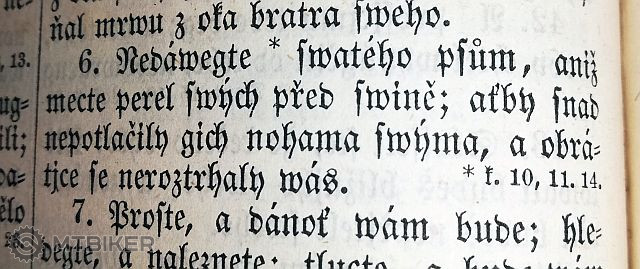 ňal mrwu z oka bratra ſweho.
6. Nedáwegte * ſwatého pſům, aniž
mecte perel ſwých před ſwině; aťby ſnad
nepotlačily gich nohama ſwýma, a obrá⸗
tjce ſe neroztrhaly wás. * k. 10, 11. 14.
7. Proſte, a dánoť wám bude; hle⸗
degte, a naleznete; tlucte, a bude wám
, 13.
ug⸗
ili;
ělo
MTBIKER